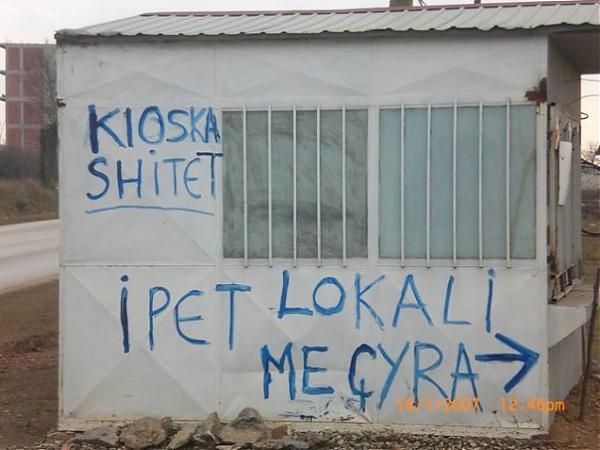 KIOSKA
SHITET
iPET LOKALi
ME ÇYRA →
18/1/2007 12:46pm